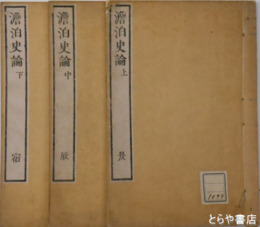 澹泊史論 上
澹泊史論 中
澹泊史論 下
辰
宿
とらや書店